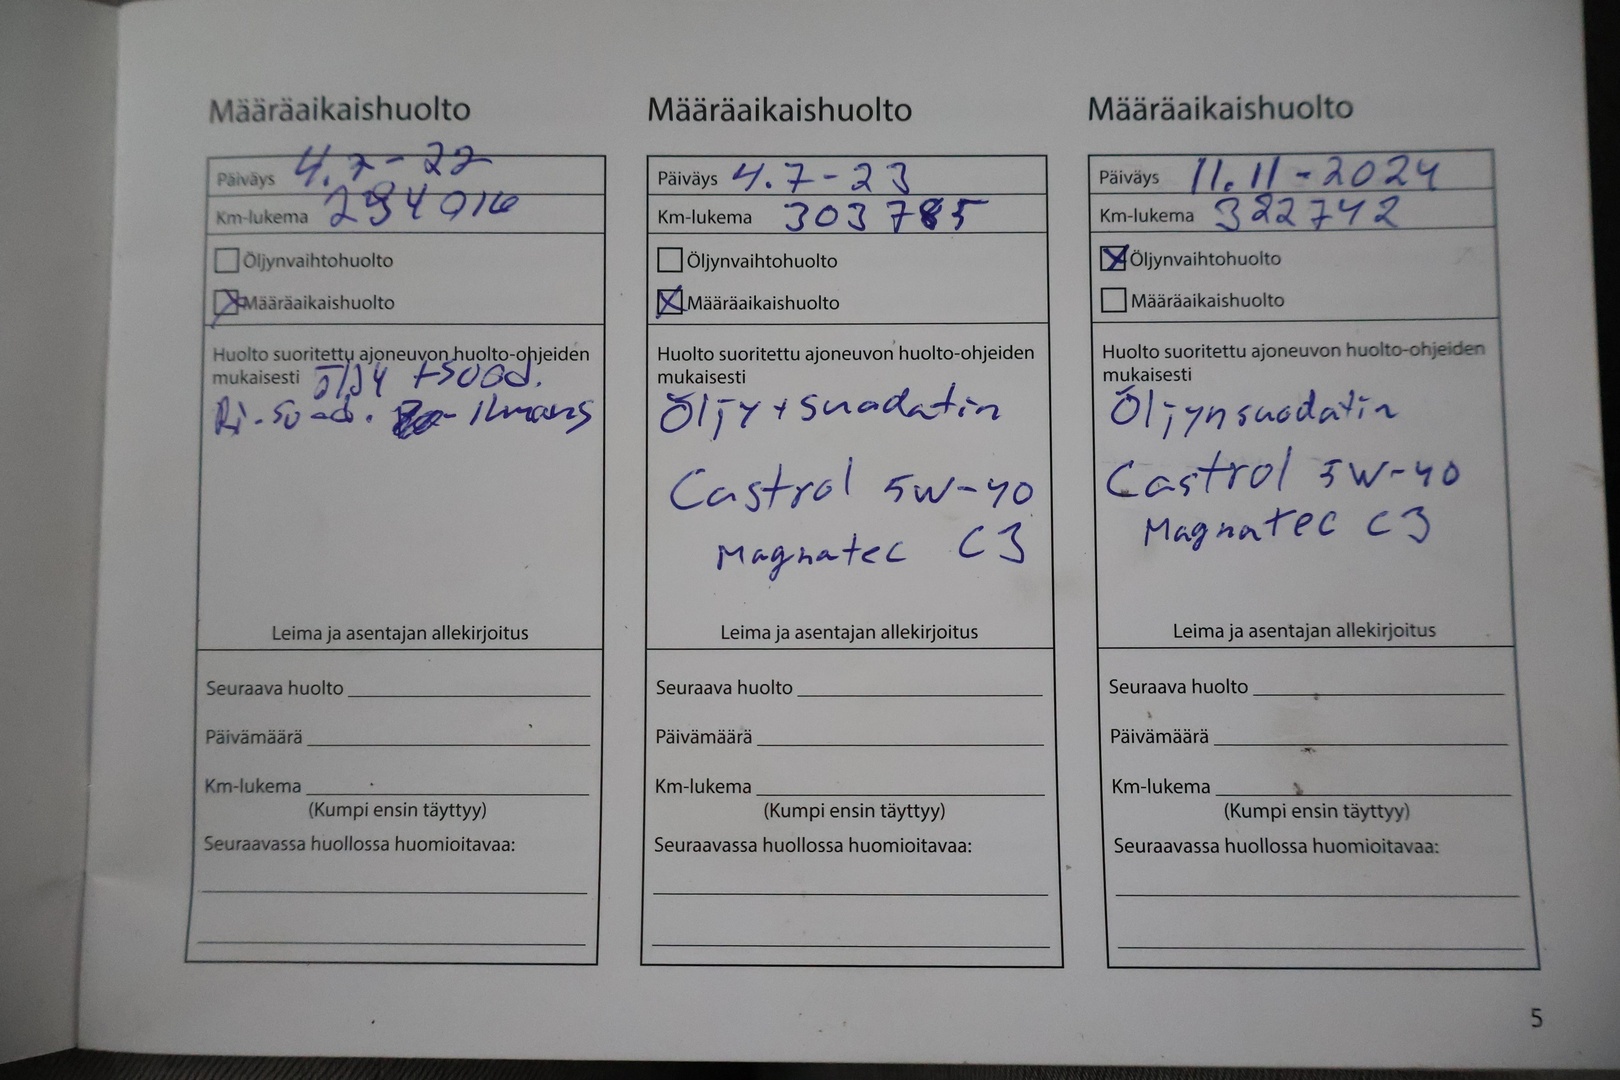 Määräaikaishuolto
Päiväys 4.7-22
Km-lukema
Öljynvaihtohuolto
Määräaikaishuolto
Huolto suoritettu ajoneuvon huolto-ohjeiden
mukaisesti öljy +suod.
Ri-suod. Ilmans
Leima ja asentajan allekirjoitus
Seuraava huolto
Päivämäärä
Km-lukema
(Kumpi ensin täyttyy)
Seuraavassa huollossa huomioitavaa:
Määräaikaishuolto
Päiväys 4.7-23
Km-lukema 303785
Öljynvaihtohuolto
Määräaikaishuolto
Huolto suoritettu ajoneuvon huolto-ohjeiden
mukaisesti
Öljy + suodatin
Castrol 5W-40
Magnatec C3
Leima ja asentajan allekirjoitus
Seuraava huolto
Päivämäärä
Km-lukema
(Kumpi ensin täyttyy)
Seuraavassa huollossa huomioitavaa:
Määräaikaishuolto
Päiväys 11.11-2024
Km-lukema 322742
Öljynvaihtohuolto
Määräaikaishuolto
Huolto suoritettu ajoneuvon huolto-ohjeiden
mukaisesti
Öljynsuodatin
Castrol 5W-40
Magnatec C3
Leima ja asentajan allekirjoitus
Seuraava huolto
Päivämäärä
Km-lukema
(Kumpi ensin täyttyy)
Seuraavassa huollossa huomioitavaa:
5